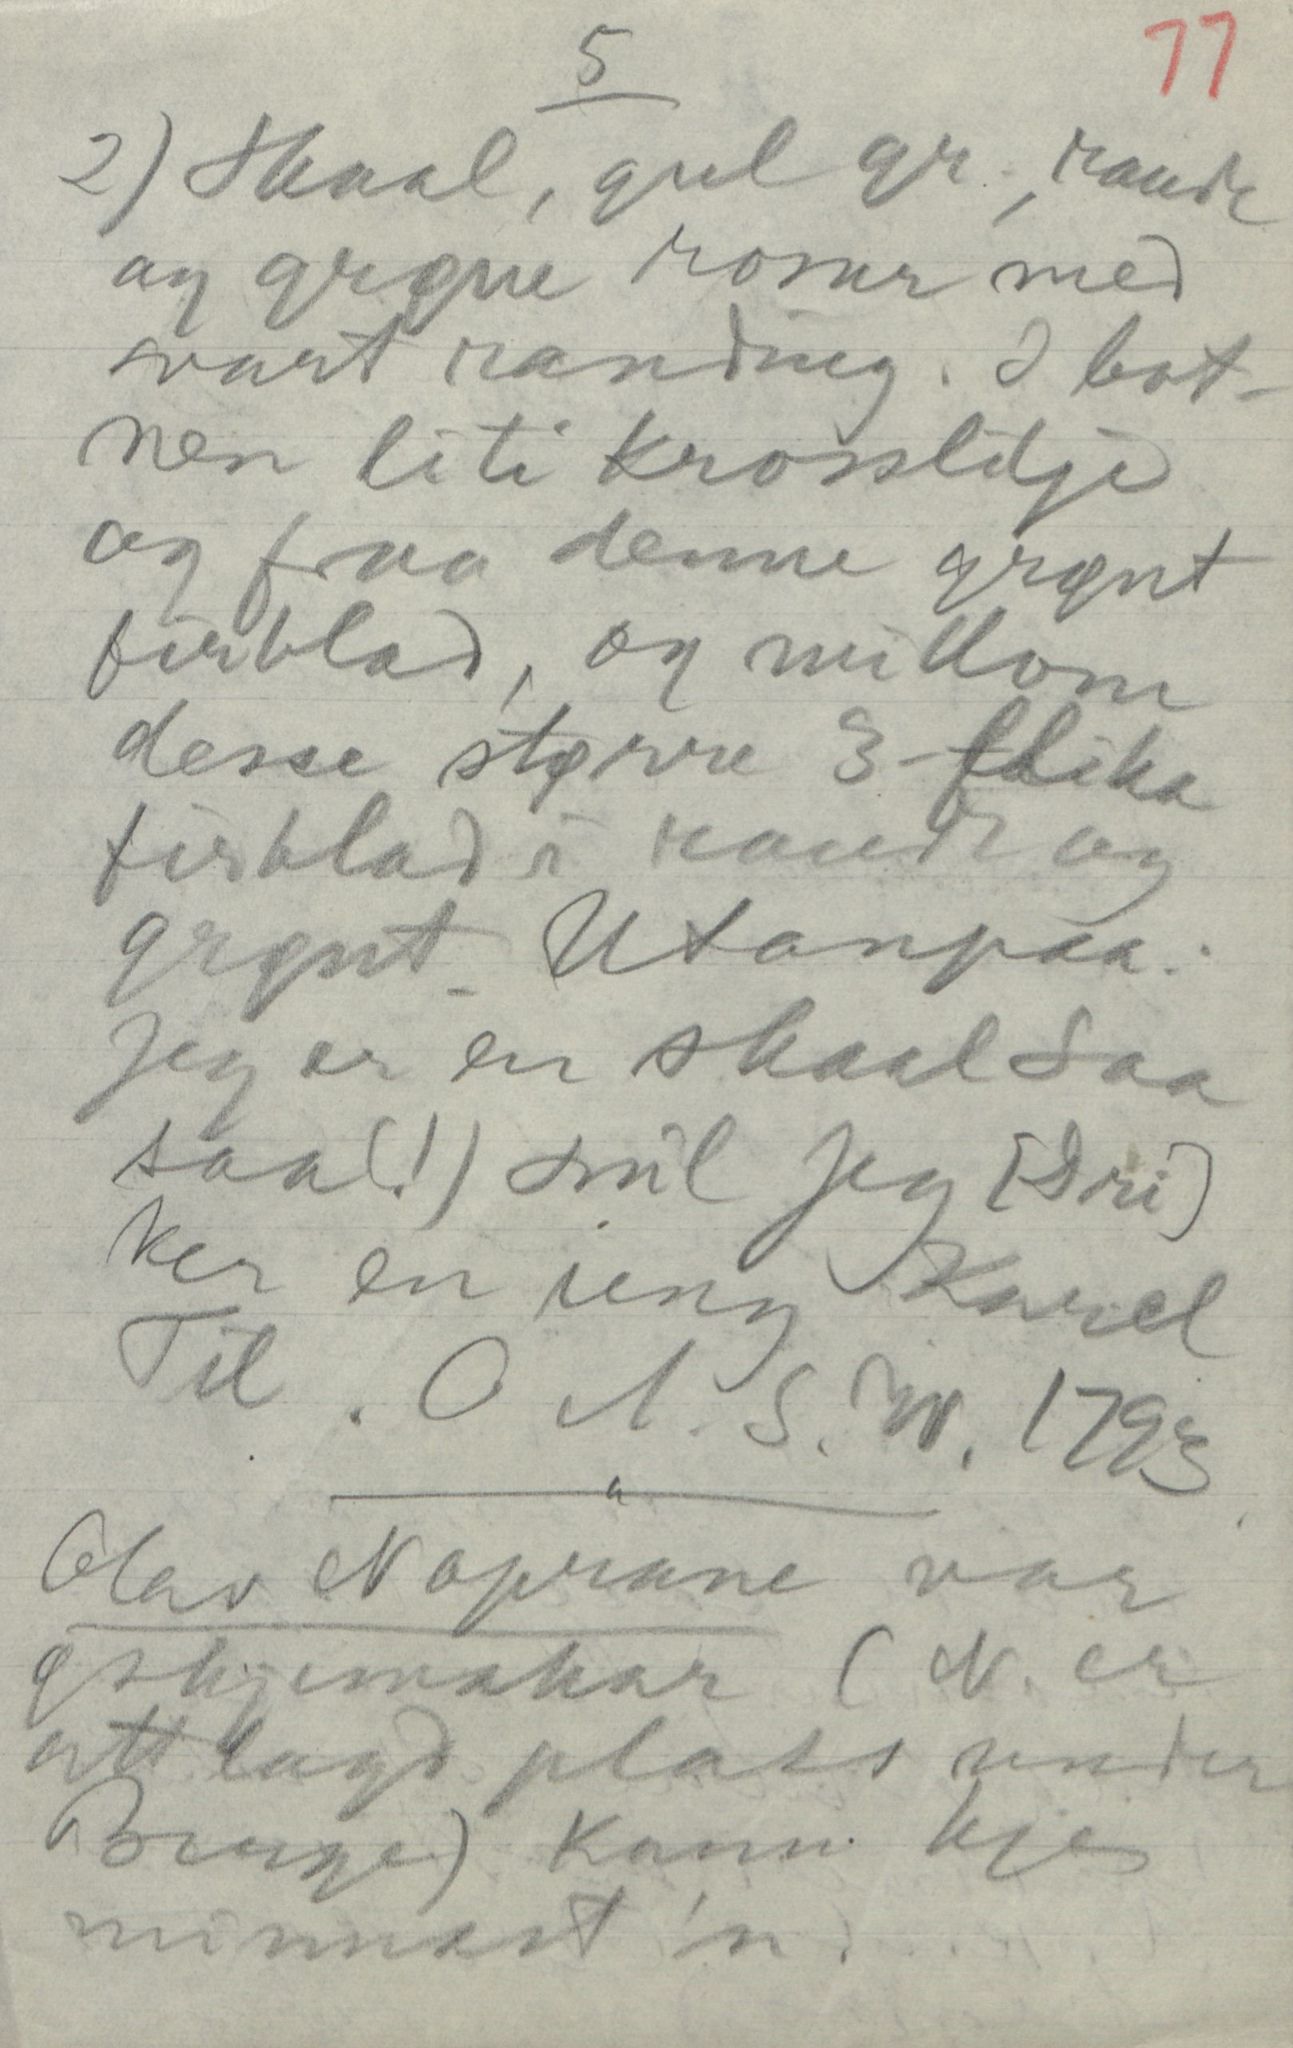 5
77
2) Skaal, gul gr., raude
og grøne rosur med
svart randing. I bot-
nen liti krosslilje
og fraa denne grønt
firblad, og millom
desse større 3-flika
firblad i raudt og
grønt. Utanpaa:
Jeg er en skaal Saa
saa(!) smil Jeg [Dri]
ker en ieng Karel
Til . O A. S. W. 1793
Olav Naprane var
øskjemakar (N. er
øydelagd plass under
Bunge) Kann kje
minnast 'n.